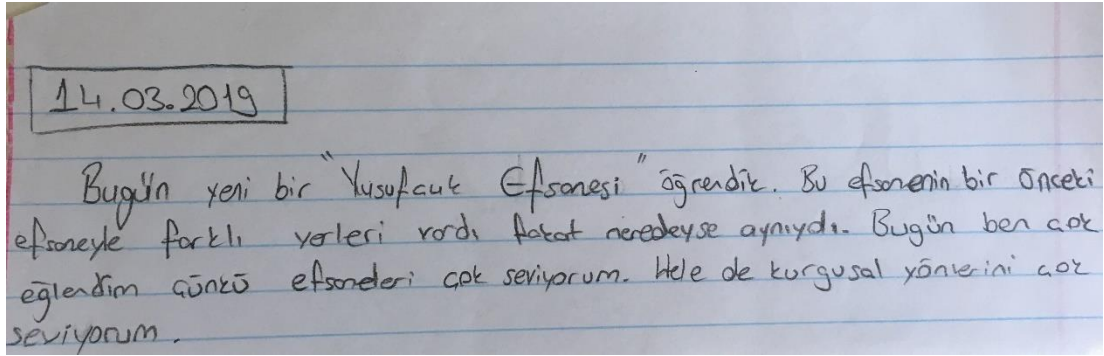 14.03.2019
Bugün yeni bir "Yusufcuk Efsanesi" öğrendik. Bu efsanenin bir önceki
efsaneyle farklı yerleri vardı fakat neredeyse aynıydı. Bugün ben çok
eğlendim çünkü efsaneleri çok seviyorum. Hele de kurgusal yönlerini çok
seviyorum.